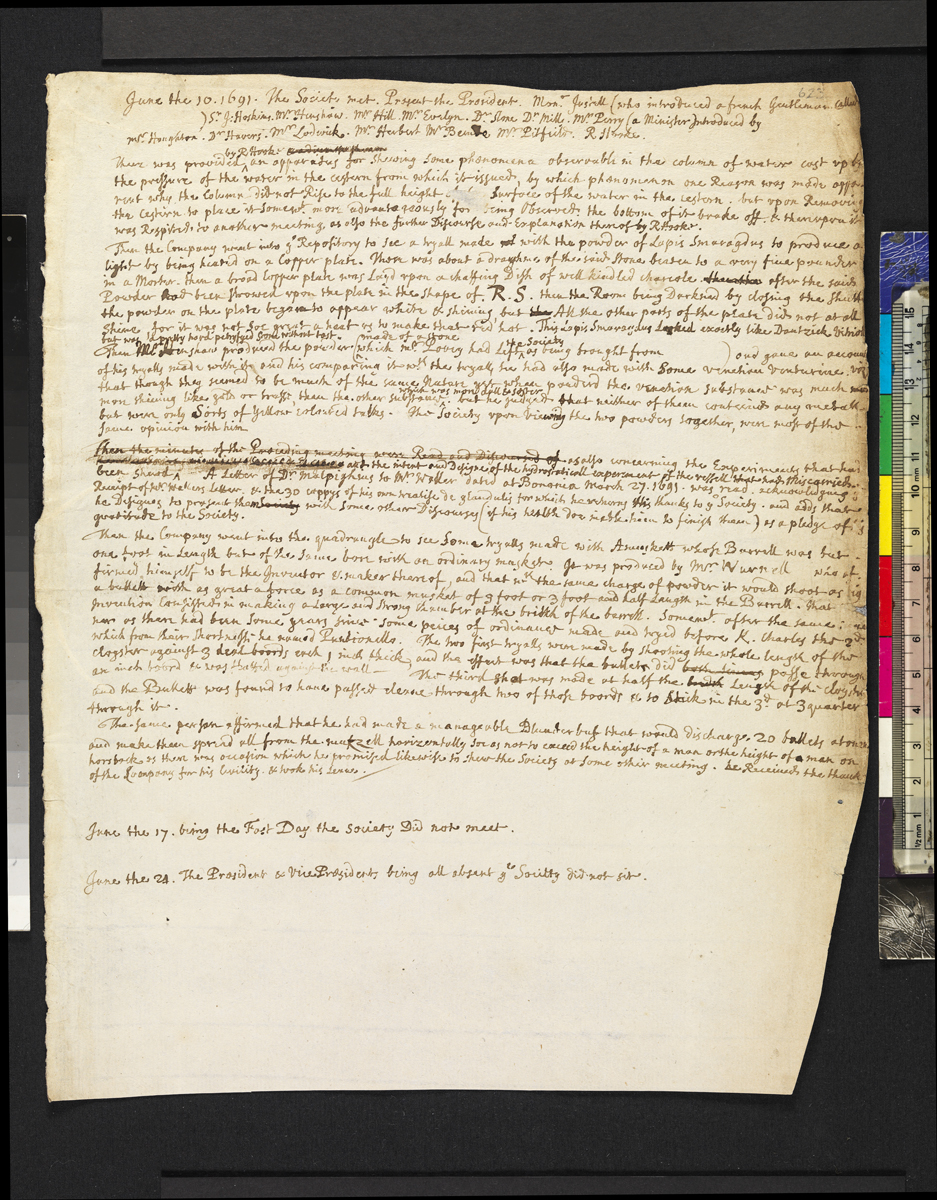 623
June the 10. 1691. The Society met. Present the President. Monr. Justell (who introduced a french Gentleman. Called
) Sr. J: Hoskins. Mr. Henshaw. Mr. Hill. Mr. Evelyn. Dr. Slone Dr. Mill. Mr. Perry (a Minister Introduced by
mr. Houghton. Dr. Havers. Mr. Lodwick. Mr. Herbert Mr. Mr. Pitfeild. R. Hooke.
by R Hooke
There was provided an apparatus for shewing some phænomena observable in the column of water cast up by
the pressure of the water in the cestern from which it issued, by which phænomenon one Reason was made appa-
rent why the Column did not Rise to the full height surface of the water in the cestern. but upon Removing
the cestern to place it somewt. more advantageously for being Observed, the bottom of it brake off. & thereupon it
was Respited to another meeting, as also the further Discourse and Explanation therof by R Hooke.
Then the Company went into ye Repository to see a tryall made with the powder of Lapis Smaragdus to produce a
light by being heated on a Copper plate. There was about a drachme of the said stone beaten to a very fine pouder
in a Morter. then a broad Copper plate was Layd upon a chaffing Dish of well kindled charcole. after the said
Powder had been strowed upon the plate in the shape of. R. S. then the Room being Darkned by closing the Shutt
the powder on the plate began to appear white & shining but All the other parts of the plate did not at all
Shine. for it was not soe great a heat as to make that red hot. This Lapis Smaragdus Looked exactly like Dantzick Vitriol
but was a pretty hard petrifyed stone without tast. made of a stone the Society
Then Mr Henshaw produced the powder which mr. Lovey had Left as being brought from ) and gave an account
of his tryalls made with it and his comparing it wth the tryalls he had also made with some venetian venturine. viz
that though they seemed to be much of the same Nature yet when poudred the venetian substance was much more
which was more dull & sober
more shining like gold or brasse then the other substance. but he judged that neither of them conteined any metall
but were only Sorts of yellow coloured talks. The Society upon viewing the two powders together, were most of the
same opinion with him.
Then the minutes of the Preceding meeting were Read and Discoursed of as also concerning the Experiments that had
as the intent and Designe of the hydrostaticall experiment of the vessell that had miscarried
been shewd A Letter of Dr. Malpighius to Mr. Waller dated at Bononia March 27. 1691. was read. acknowledging ye
Receipt of Mr. Wallers Letter. & the 30 coppys of his own treatise de glandulis for which he returns thanks to ye Society. and adds that
he Designes to present them with some other Discourses (if his health doe make him to finish them) as a pledge of his
gratitude to the Society.
Then the Company went into the quadrangle to see some tryalls made with A muskett whose Barrell was but
one foot in Length but of the same bore with an ordinary musket. It was produced by Mr. who af-
firmed himself to be the Inventor & maker thereof, and that wth the same charge of powder it would shoot as
a bullett with as great a force as a common musket of 3 foot or 3 foot and half Length in the Barrell. That
Invention Consisted in making a Large and strong chamber at the britch of the barrell. Somewt. after the same
ner as there had been some years since some peices of ordinance made and tryed before K. Charles the 2d
which from thair shortness he named Punchonello. The two first tryalls were made by shooting the whole length of the
cloyster against 3 deal boords each 1 inch thick, and the effect was that the bullets did passe through
an inch boord & was flatted against the wall The third shot was made at half the Length of the cloyster
and the Bullett was found to have passed cleane through two of those boords & to stick in the 3d at 3 quarter
through it.
The same person affirmed that he had made a manageable Blunderbuss that would discharge 20 bullets at once
and make them spread all from the muzzell horizontally soe as not to exceed the height of a man or the height of a man on
horsback as there was occasion which he promised likewise to shew the Society at some other meeting. he Received the thanks
of the Company for his Civility. & took his Leave.
June the 17. being the Fast Day the Society Did not meet.
June the 24. The President & Vice Presidents being all absent ye Society did not sit.